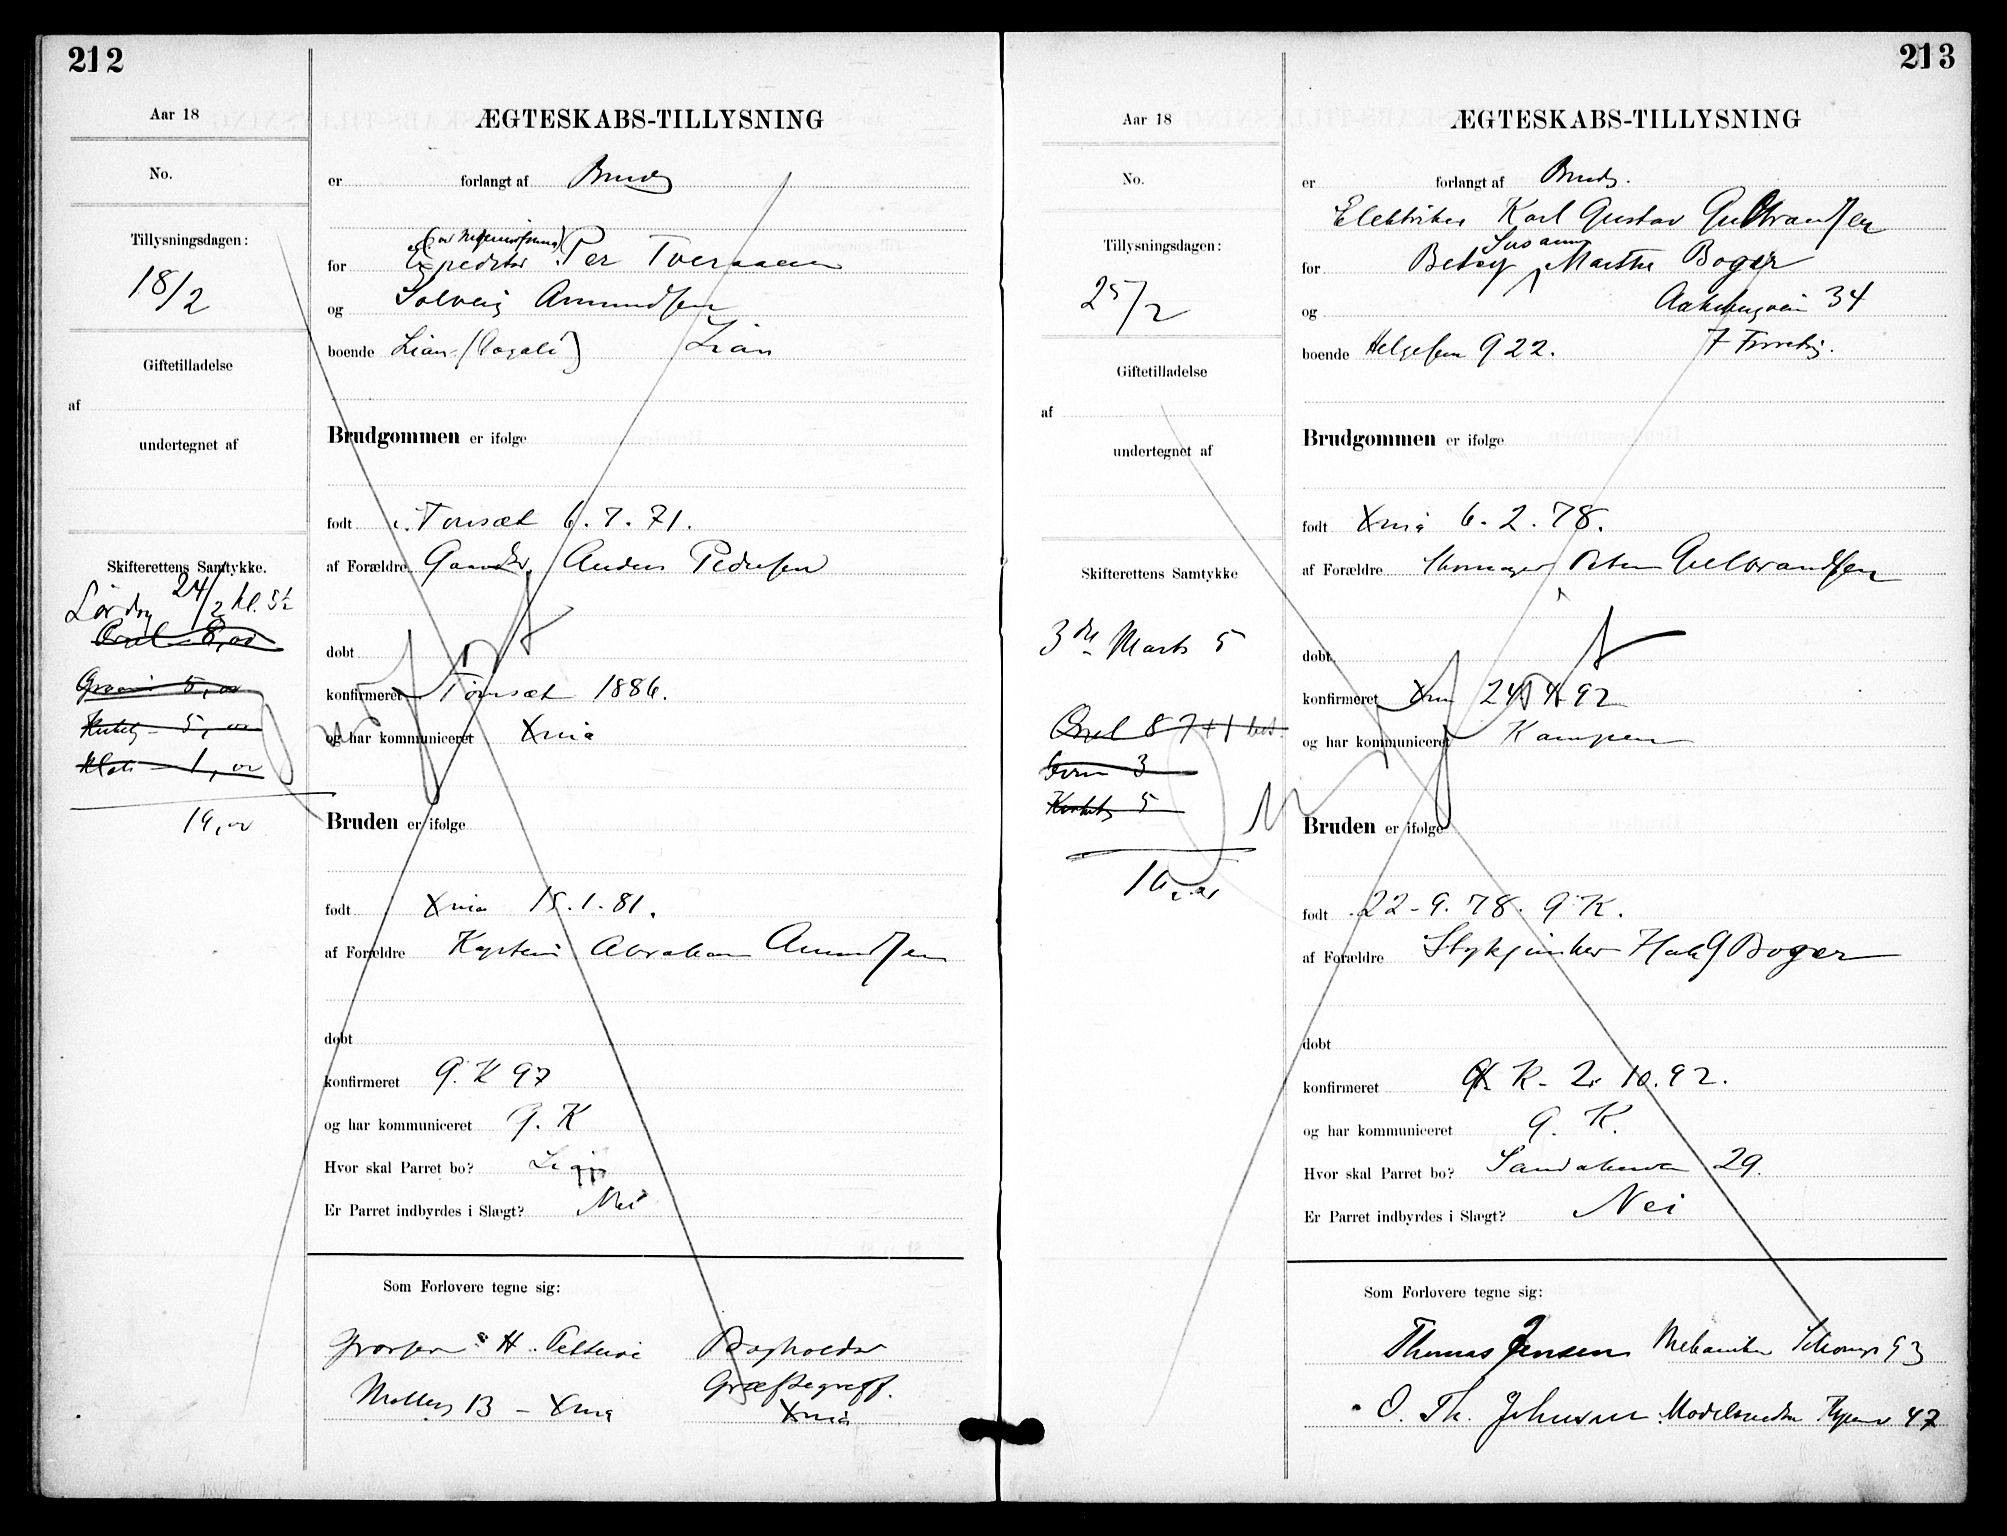 212
Aar 18
No.
Tillysningsdagen:
18/2
Giftetilladelse
af
undertegnet af
Skifterettens Samtykke.
Lørdag 24/2 kl. 5½
Orgel 8,00
5,00
5,00
1,00
19,00
ÆGTESKABS-TILLYSNING
er forlangt af Brudg
for Expeditør Per Tveraaen
og Solveig Amundsen
boende Lian Lian
Brudgommen er ifølge
født Tønsæt 6.7.71.
af Forældre Gaardbr. Anders Pedersen
døbt
konfirmeret Tønsæt 1886.
og har kommuniceret Xnia
Bruden er ifølge
født Xnia 15.1.81.
af Forældre Kaptein Abraham Amundsen
døbt
konfirmeret G. K 97
og har kommuniceret G. K
Hvor skal Parret bo? Lian
Er Parret indbyrdes i Slægt? Nei
Som Forlovere tegne sig:
H. Bogholder
Græftegreff.
Møllerg 13 - Xnia Xnia
213
Aar 18
No.
Tillysningsdagen:
25/2
Giftetilladelse
af
undertegnet af
Skifterettens Samtykke
3die Marts 5
Orgel 8 7+1
3
5
16,00
ÆGTESKABS-TILLYSNING
er forlangt af Brudg.
Elektriker Karl Gustav Gulbrandsen
Susanna
for Betsy Marthe Boger
og 34
boende Helgesens G 22. 7
Brudgommen er ifølge
født Xnia 6.2.78.
af Forældre Skomager Peter Gulbrandsen
døbt
konfirmeret Xnia 24.4.92
og har kommuniceret Kampen
Bruden er ifølge
født 22-9.78. G K.
af Forældre Boger
døbt
konfirmeret G K- 2. 10.92.
og har kommuniceret G. K.
Hvor skal Parret bo? Sandakerv 29.
Er Parret indbyrdes i Slægt? Nei
Som Forlovere tegne sig:
Thomas Jensen Mekaniker 93
O. Th. Johnsen Modelsnedker 47